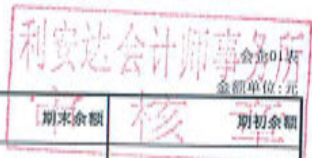 利安达会计师事务所
会企01表
金额单位:元
审核章
期末余额 期初余额